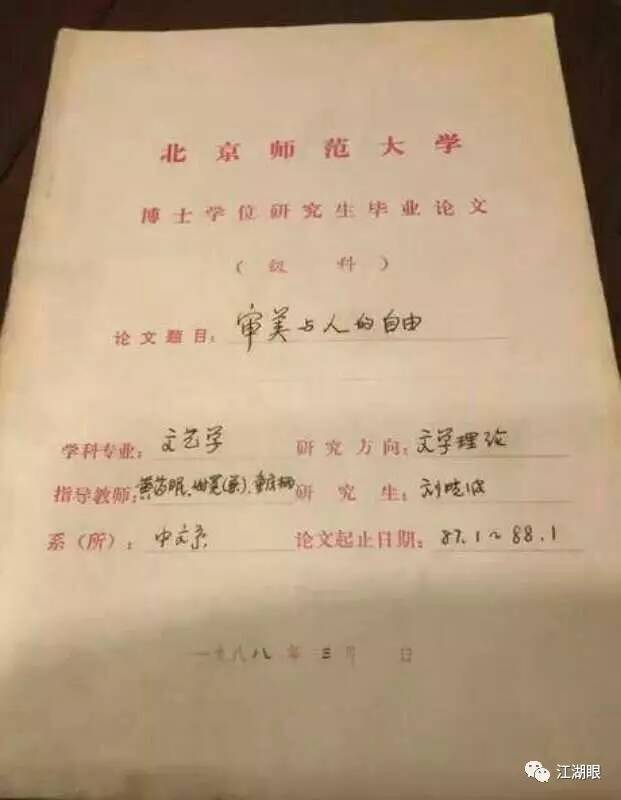 北京师范大学
博士学位研究生毕业论文
（ 级 科 ）
论文题目：审美与人的自由
学科专业：文艺学 研究方向：文学理论
指导教师：黄药眠、钟 (敬)、童庆炳 研究生：刘晓波
系（所）：中文系 论文起止日期：87.1~88.1
一九八八年三月 日
江湖眼